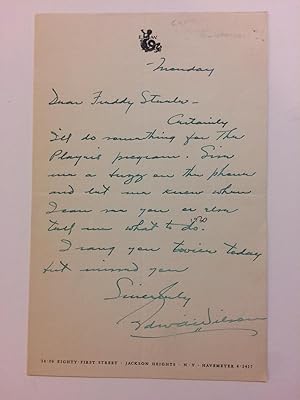 E W
Monday
Dear Freddy Stuart -
Certainly
I'll do something for The
Playgoer program. Give
me a buzz on the phone
and let me know when
I can see you or else
tell me what to do.
I rang you twice today
but missed you
Sincerely
Edward Wilson
EIGHTY-FIRST STREET · JACKSON HEIGHTS · N · Y · HAVEMEYER